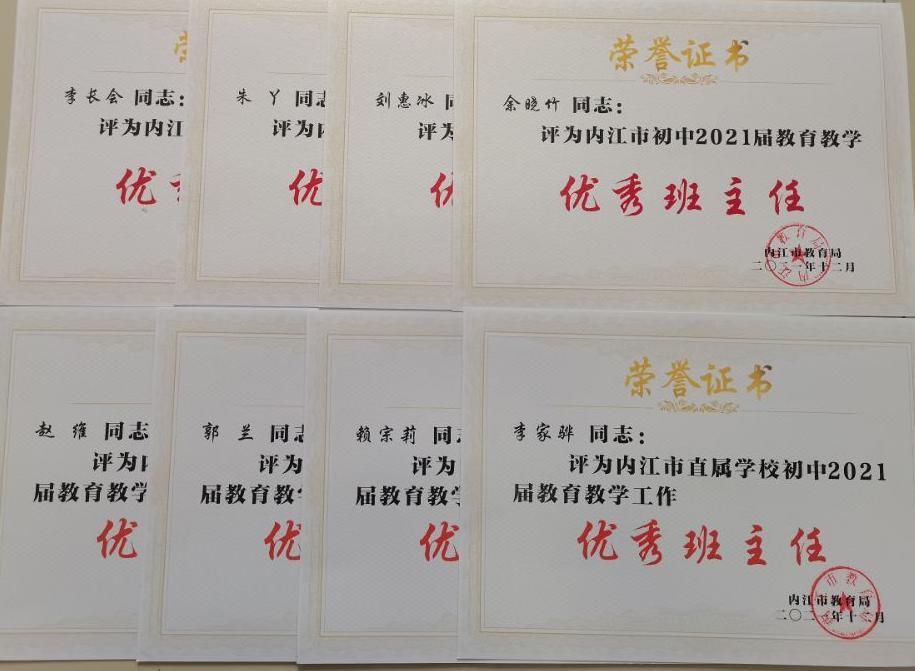 荣
李长会 同志：
评为内江
优秀
朱 丫 同志
评为内
优
刘惠冰 同
评为
优
荣誉证书
余晓竹 同志：
评为内江市初中2021届教育教学
优秀班主任
内江市教育局
二〇二一年十二月
赵 维 同志
评为内
届教育教学
优
郭 兰 同志
评为内
届教育教学
优
赖宗莉 同志
评为内
届教育教学
优
荣誉证书
李家骅 同志：
评为内江市直属学校初中2021
届教育教学工作
优秀班主任
内江市教育局
二〇二一年十二月